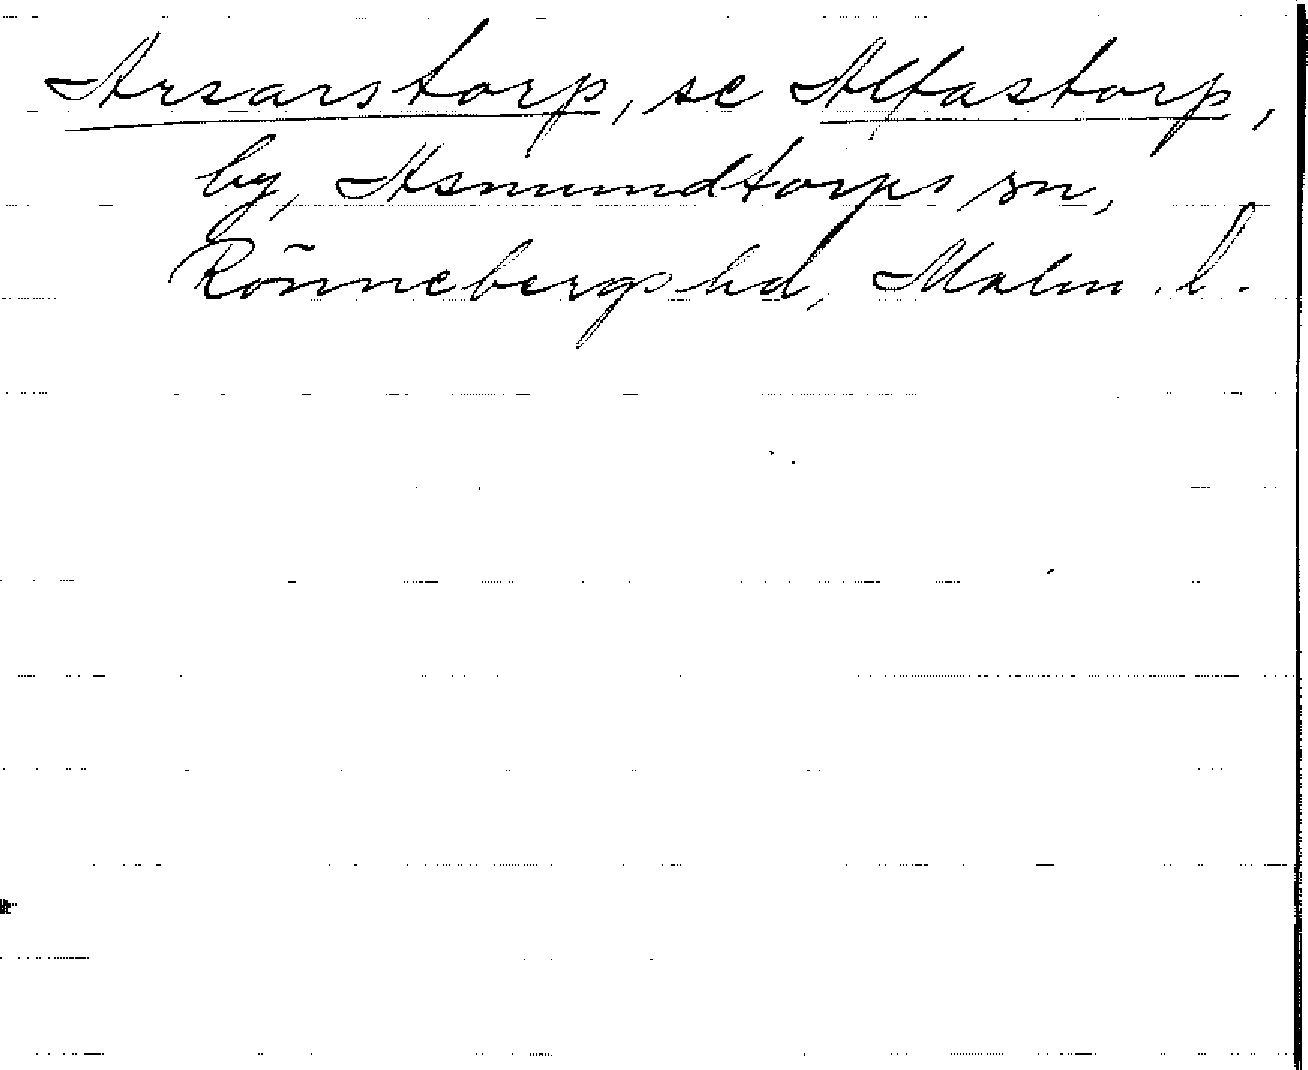 Arsarstorp, se Alfastorp,
by, Asmundtorps sn,
Rönnebergs hd, Malm. l.